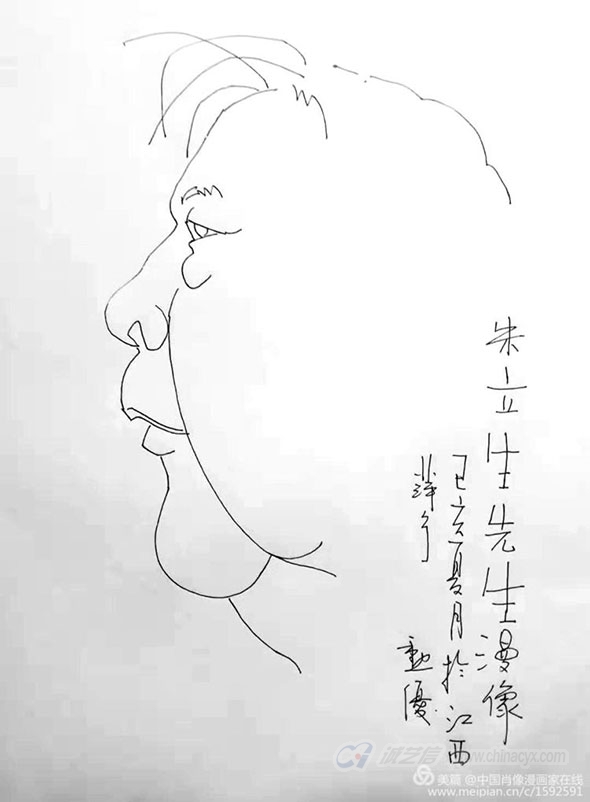 朱立生先生漫像
己亥夏月於江西
萍乡
勳優
诚艺信 www.chinacyx.com
美篇 @中国肖像漫画家在线
www.meipian.cn/c/1592591